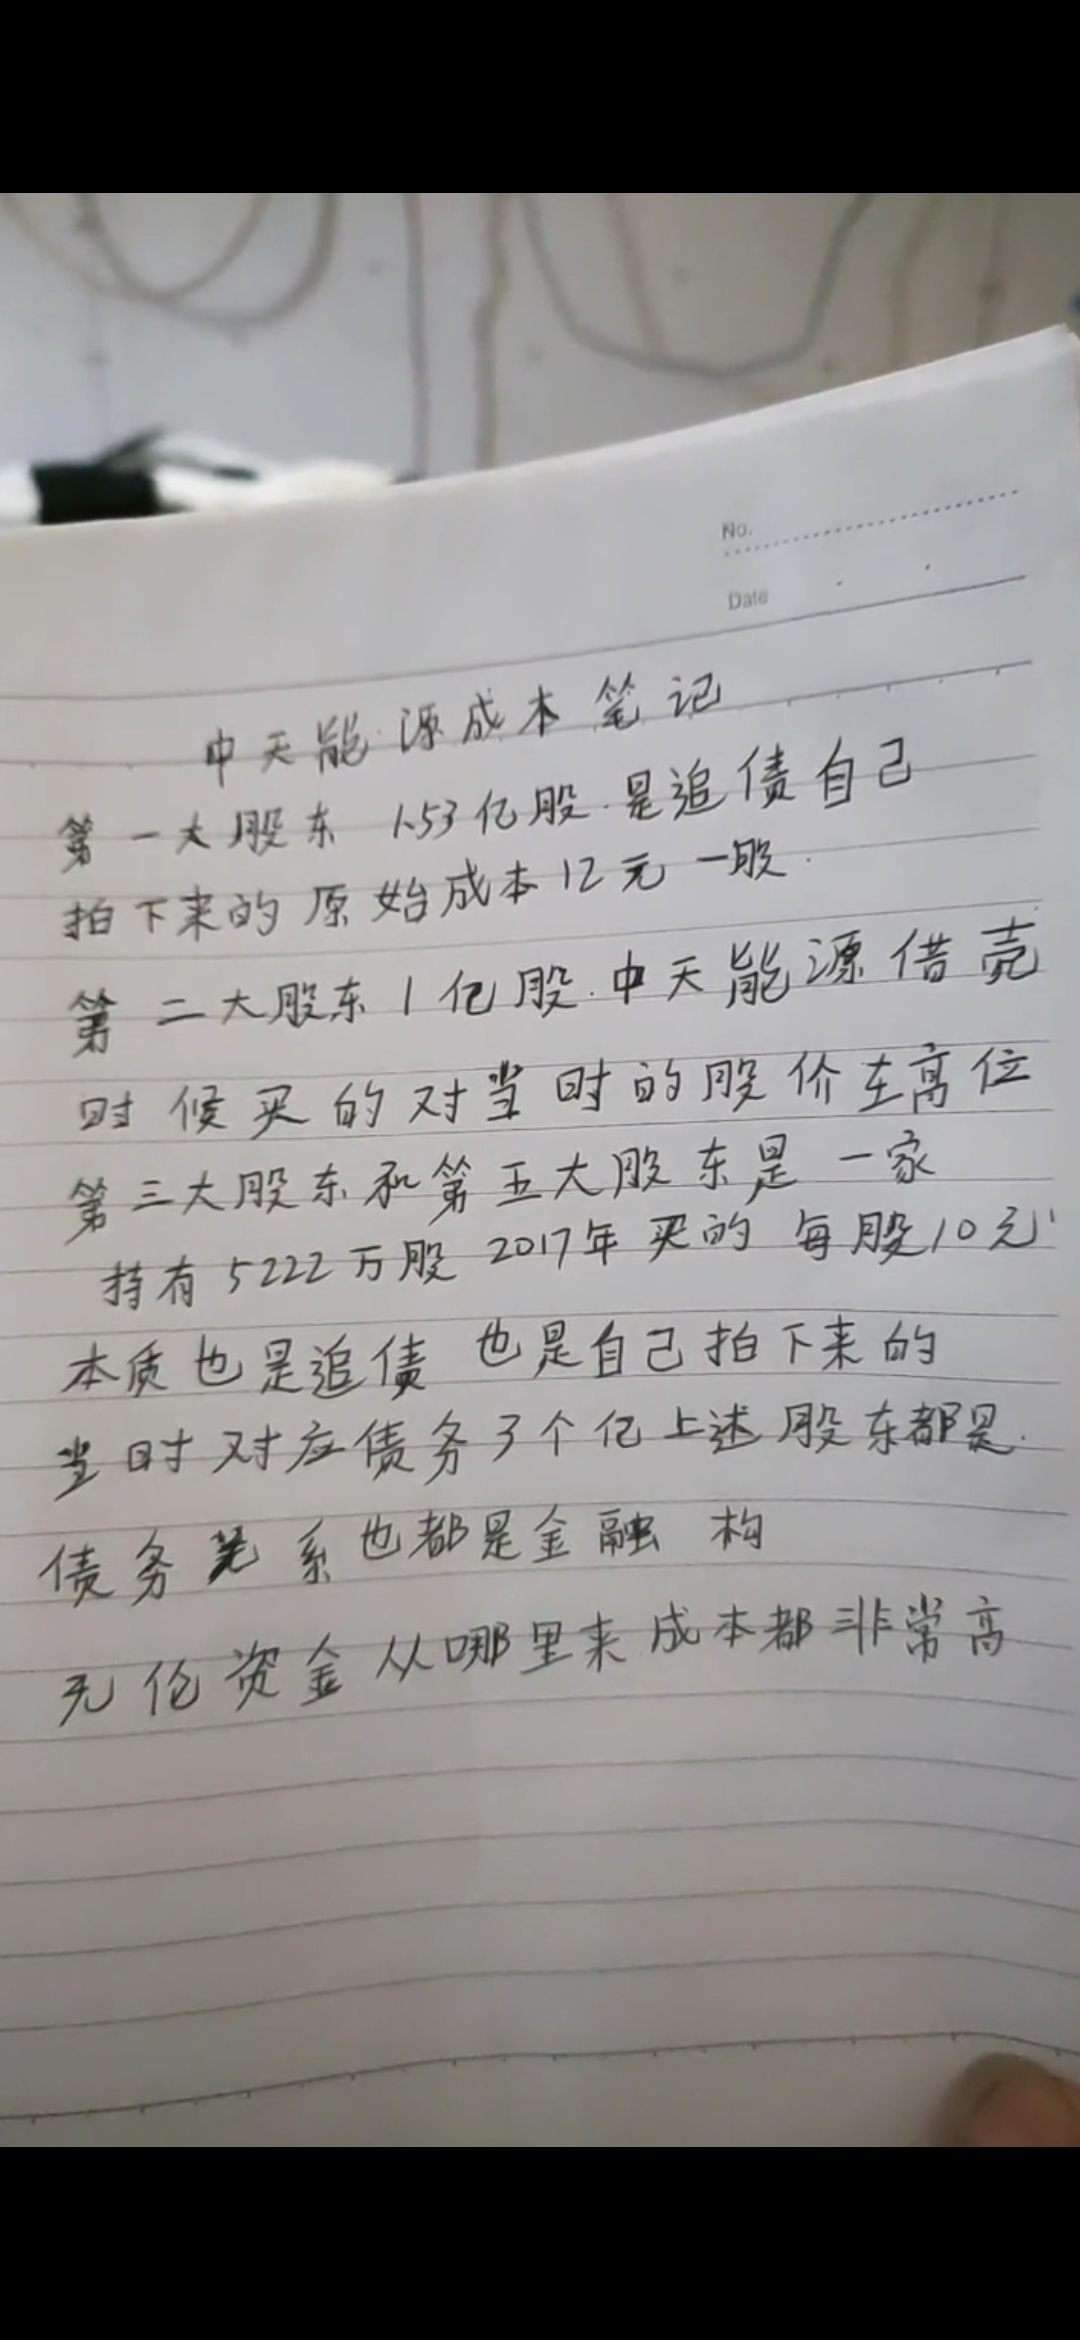 No.
Date
中天能源成本笔记
第一大股东 1.53亿股.是追债自己
拍下来的原始成本12元一股.
第二大股东1亿股.中天能源借壳
时候买的对当时的股价在高位
第三大股东和第五大股东是一家
持有5222万股 2017年买的 每股10元
本质也是追债 也是自己拍下来的
当时对应债务了个亿上述股东都是.
债务关系也都是金融 构
无伦资金从哪里来成本都非常高